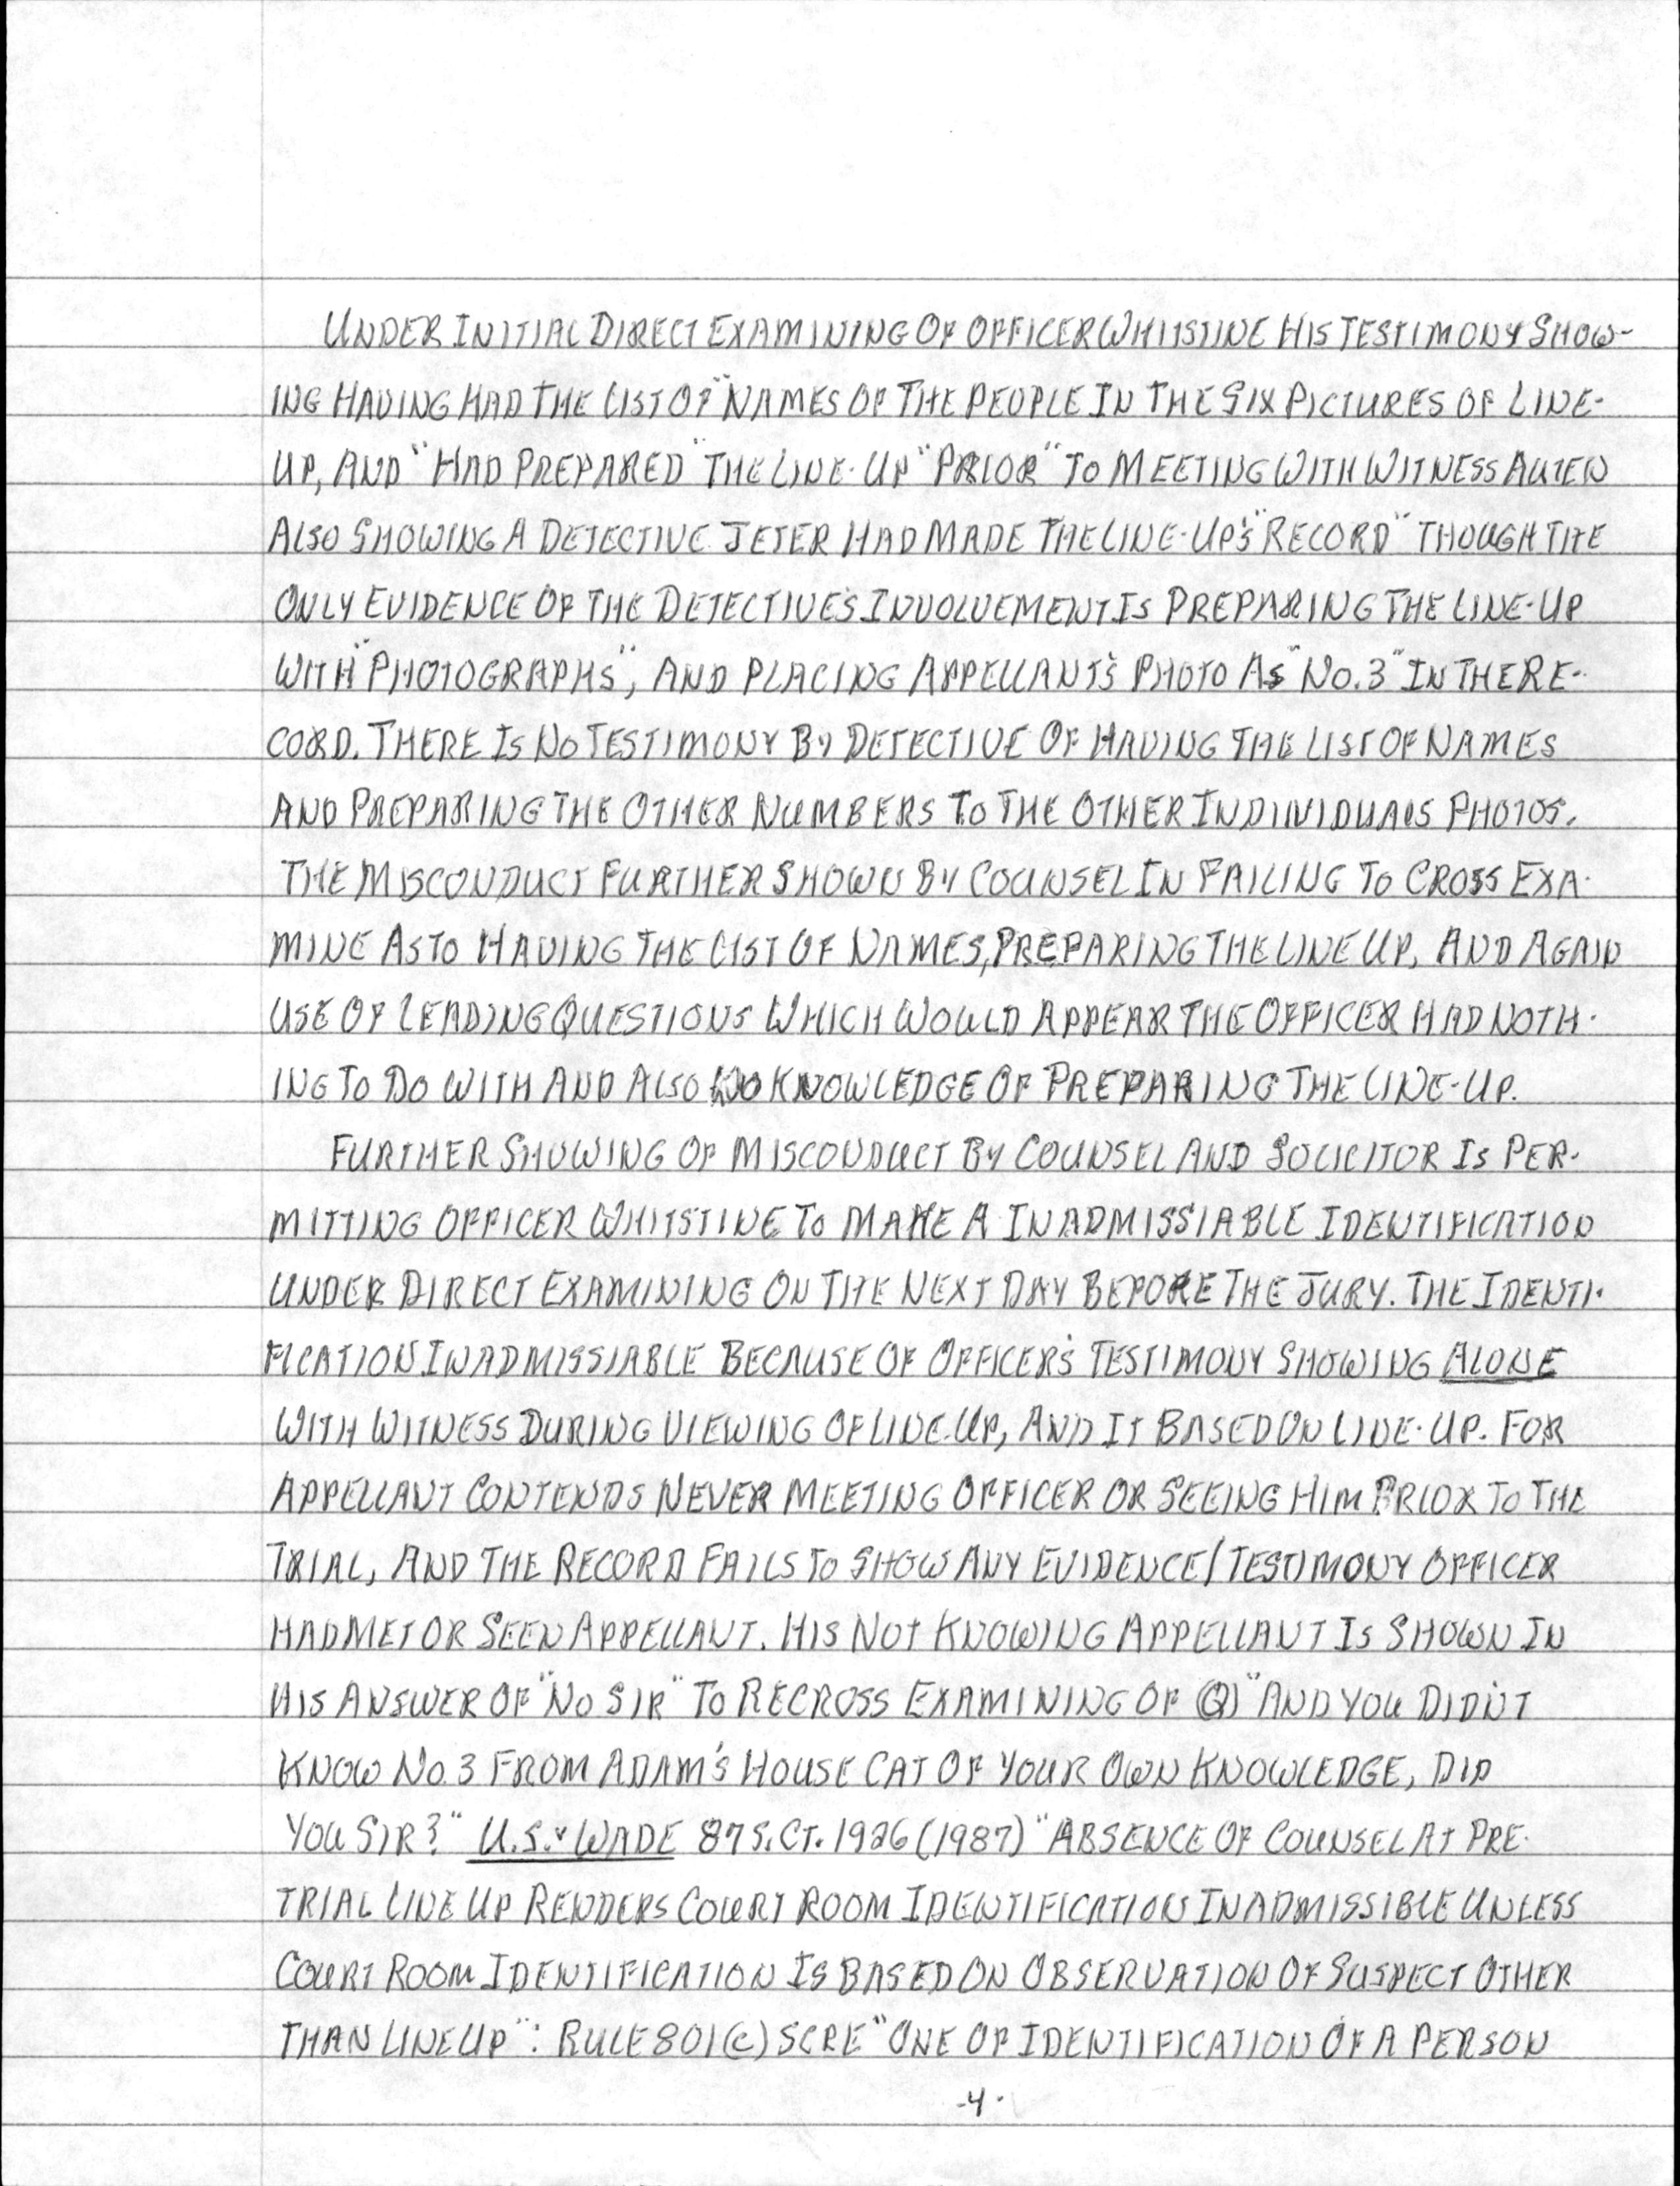 UNDER INITIAL DIRECT EXAMINING OF OFFICER WHITSTINE HIS TESTIMONY SHOW-
ING HAVING HAD THE LIST OF "NAMES OF THE PEOPLE IN THE SIX PICTURES OF LINE-
UP, AND "HAD PREPARED" THE LINE-UP "PRIOR" TO MEETING WITH WITNESS AUTEN
ALSO SHOWING A DETECTIVE JETER HAD MADE THE LINE-UP'S "RECORD" THOUGH THE
ONLY EVIDENCE OF THE DETECTIVE'S INVOLVEMENT IS PREPARING THE LINE-UP
WITH "PHOTOGRAPHS", AND PLACING APPELLANT'S PHOTO AS "NO.3" IN THE RE-
CORD. THERE IS NO TESTIMONY BY DETECTIVE OF HAVING THE LIST OF NAMES
AND PREPARING THE OTHER NUMBERS TO THE OTHER INDIVIDUALS PHOTOS.
THE MISCONDUCT FURTHER SHOWN BY COUNSEL IN FAILING TO CROSS EXA-
MINE AS TO HAVING THE LIST OF NAMES, PREPARING THE LINE UP, AND AGAIN
USE OF LEADING QUESTIONS WHICH WOULD APPEAR THE OFFICER HAD NOTH-
ING TO DO WITH AND ALSO NO KNOWLEDGE OF PREPARING THE LINE-UP.
FURTHER SHOWING OF MISCONDUCT BY COUNSEL AND SOLICITOR IS PER-
MITTING OFFICER WHITSTINE TO MAKE A INADMISSIABLE IDENTIFICATION
UNDER DIRECT EXAMINING ON THE NEXT DAY BEFORE THE JURY. THE IDENTI-
FICATION INADMISSIABLE BECAUSE OF OFFICER'S TESTIMONY SHOWING ALONE
WITH WITNESS DURING VIEWING OF LINE-UP, AND IT BASED ON LINE-UP. FOR
APPELLANT CONTENDS NEVER MEETING OFFICER OR SEEING HIM PRIOR TO THE
TRIAL, AND THE RECORD FAILS TO SHOW ANY EVIDENCE/TESTIMONY OFFICER
HAD MET OR SEEN APPELLANT. HIS NOT KNOWING APPELLANT IS SHOWN IN
HIS ANSWER OF "NO SIR" TO RECROSS EXAMINING OF Q) "AND YOU DIDN'T
KNOW NO. 3 FROM ADAM'S HOUSE CAT OF YOUR OWN KNOWLEDGE, DID
YOU SIR?" U.S. v WADE 87 S.CT. 1926 (1987) "ABSENCE OF COUNSEL AT PRE-
TRIAL LINE UP RENDERS COURT ROOM IDENTIFICATION INADMISSIBLE UNLESS
COURT ROOM IDENTIFICATION IS BASED ON OBSERVATION OF SUSPECT OTHER
THAN LINE UP": RULE 801(C) SCRE "ONE OF IDENTIFICATION OF A PERSON
-4-